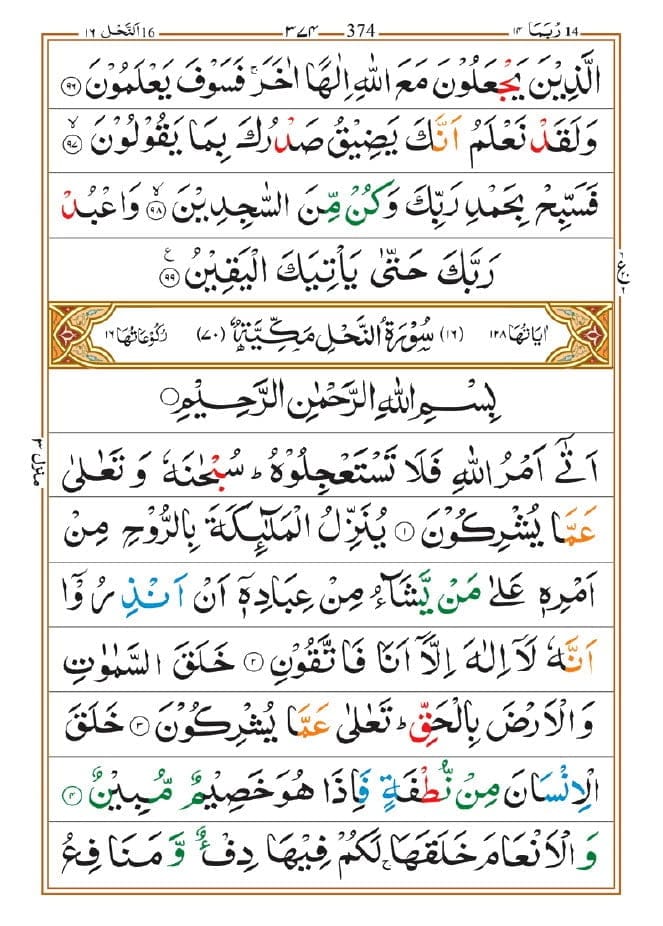 ١٤ رُبَمَا 14 374 ٣٧٤ 16 اَلنَّحْل ١٦
الَّذِيْنَ يَجْعَلُوْنَ مَعَ اللّٰهِ اِلٰهًا اٰخَرَ ۚ فَسَوْفَ يَعْلَمُوْنَ ۝٩٦
وَلَقَدْ نَعْلَمُ اَنَّكَ يَضِيْقُ صَدْرُكَ بِمَا يَقُوْلُوْنَ ۝٩٧ۙ
فَسَبِّحْ بِحَمْدِ رَبِّكَ وَكُنْ مِّنَ السّٰجِدِيْنَ ۝٩٨ۙ وَاعْبُدْ
رَبَّكَ حَتّٰى يَاْتِيَكَ الْيَقِيْنُ ۝٩٩ ع
اٰيَاتُهَا ١٢٨ (١٦) سُوْرَةُ النَّحْلِ مَكِّيَّةٌ (٧٠) رُكُوْعَاتُهَا ١٦
بِسْمِ اللّٰهِ الرَّحْمٰنِ الرَّحِيْمِ ۝
اَتٰۤى اَمْرُ اللّٰهِ فَلَا تَسْتَعْجِلُوْهُ ؕ سُبْحٰنَهٗ وَ تَعٰلٰى
منزل ٣
عَمَّا يُشْرِكُوْنَ ۝١ يُنَزِّلُ الْمَلٰٓئِكَةَ بِالرُّوْحِ مِنْ
اَمْرِهٖ عَلٰى مَنْ يَّشَآءُ مِنْ عِبَادِهٖۤ اَنْ اَنْذِرُوْۤا
اَنَّهٗ لَاۤ اِلٰهَ اِلَّاۤ اَنَا فَاتَّقُوْنِ ۝٢ خَلَقَ السَّمٰوٰتِ
وَالْاَرْضَ بِالْحَقِّ ؕ تَعٰلٰى عَمَّا يُشْرِكُوْنَ ۝٣ خَلَقَ
الْاِنْسَانَ مِنْ نُّطْفَةٍ فَاِذَا هُوَ خَصِيْمٌ مُّبِيْنٌ ۝٤
وَالْاَنْعَامَ خَلَقَهَا ۚ لَكُمْ فِيْهَا دِفْءٌ وَّ مَنَافِعُ